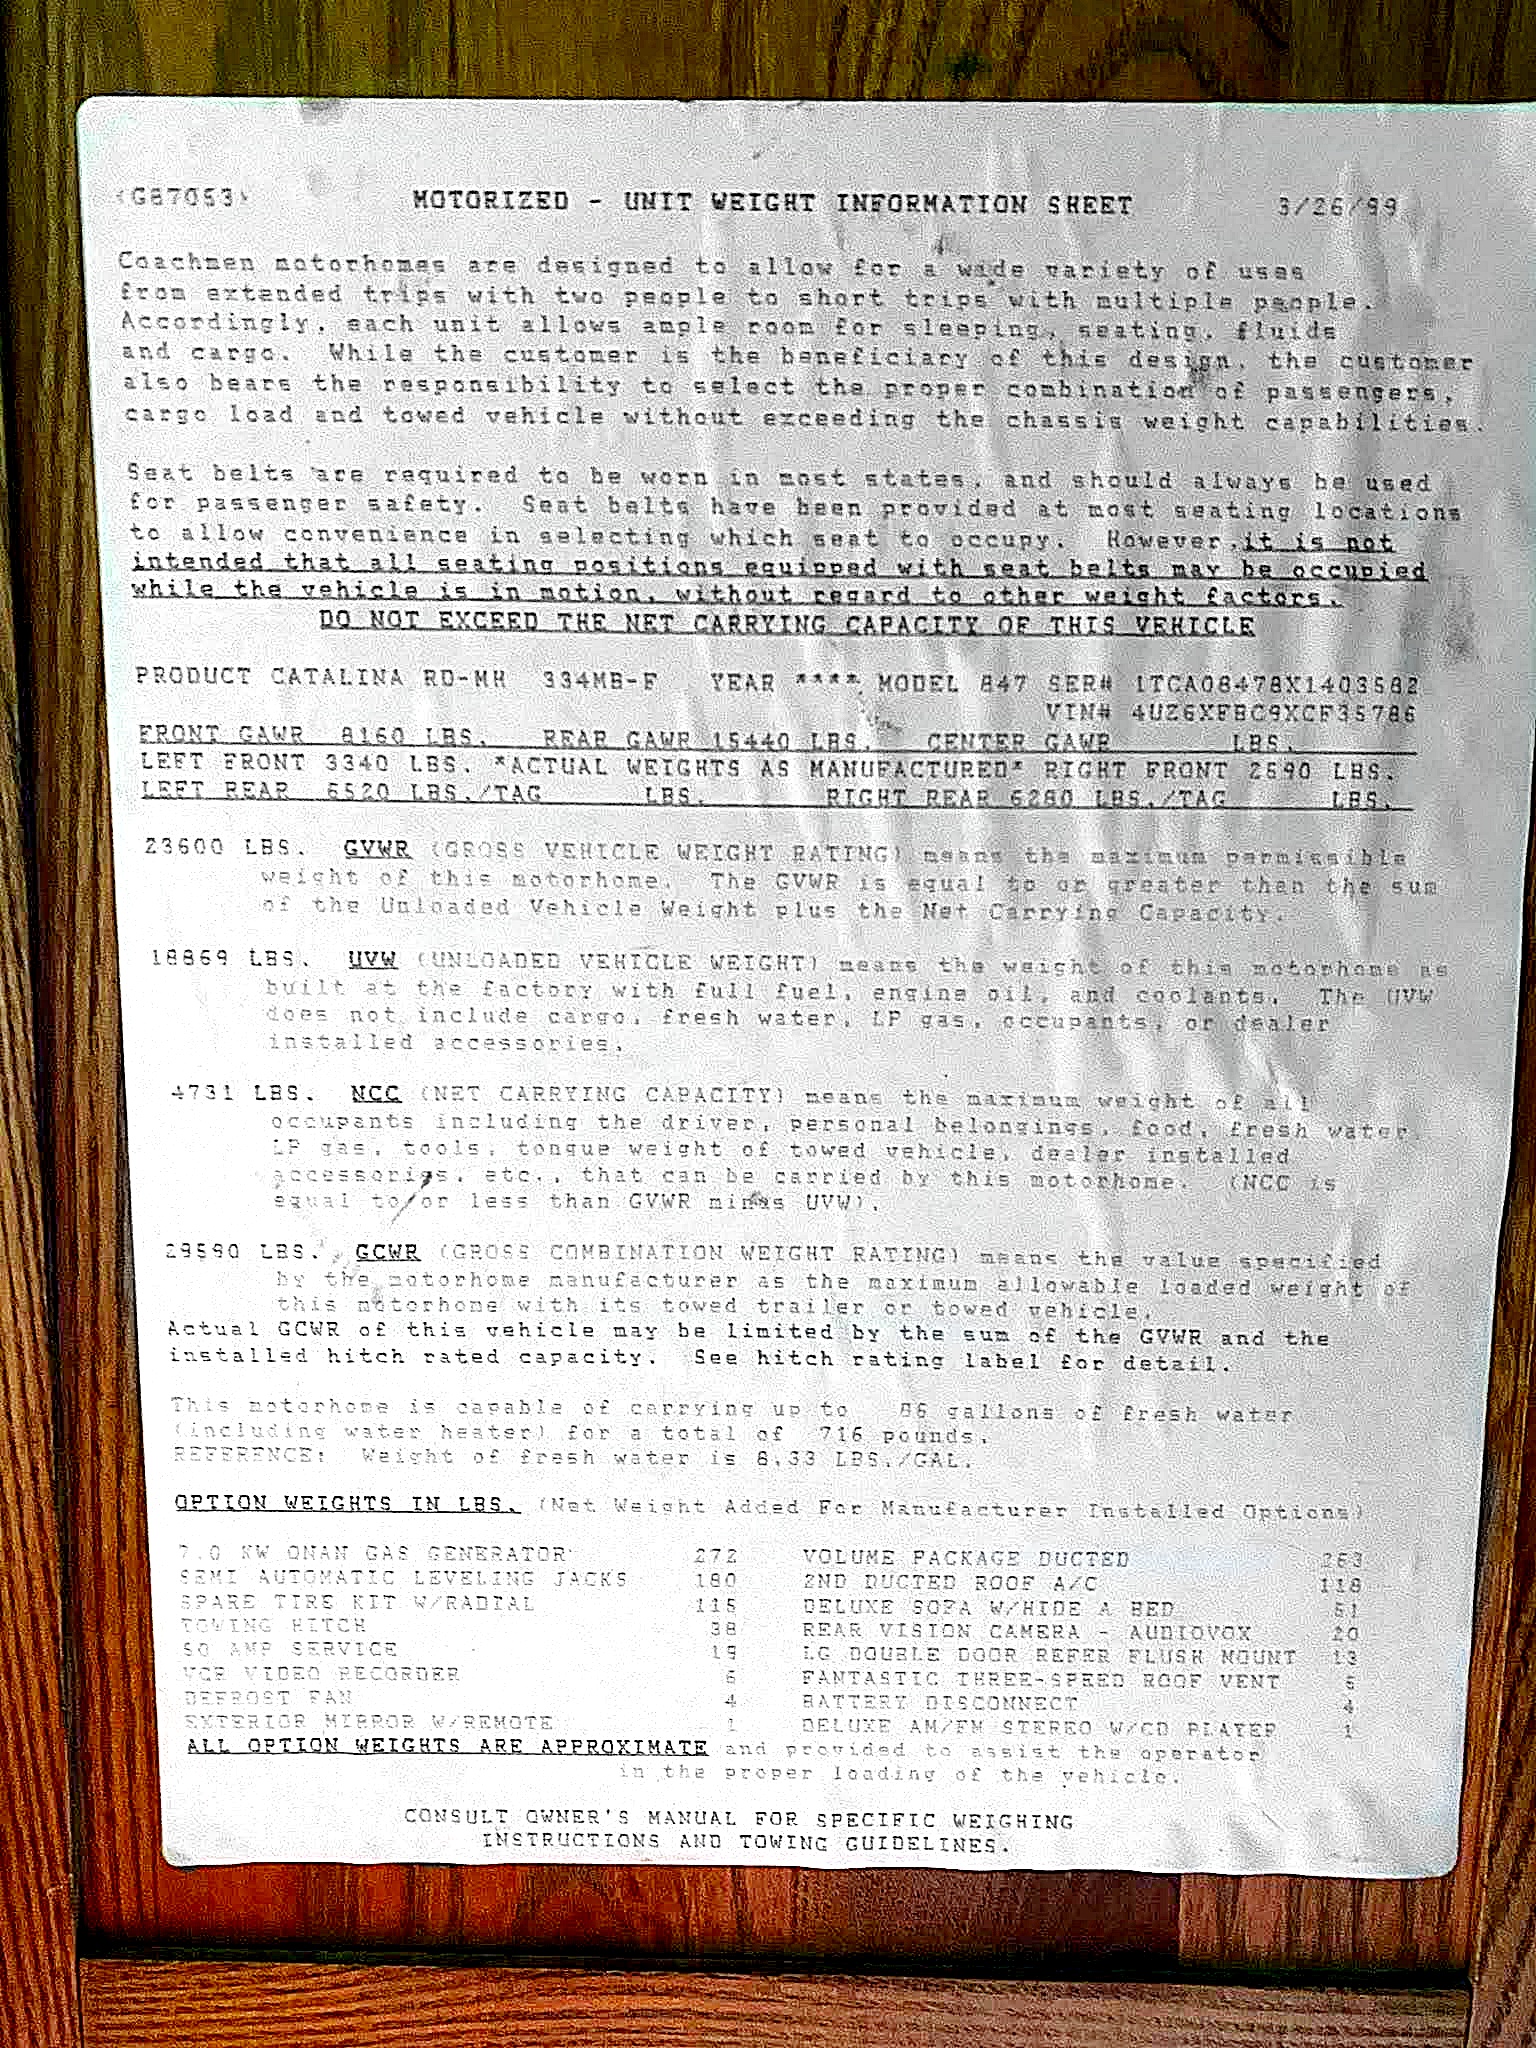 <G87053> MOTORIZED - UNIT WEIGHT INFORMATION SHEET 3/26/99
Coachmen motorhomes are designed to allow for a wide variety of uses
from extended trips with two people to short trips with multiple people.
Accordingly, each unit allows ample room for sleeping, seating, fluids
and cargo. While the customer is the beneficiary of this design, the customer
also bears the responsibility to select the proper combination of passengers,
cargo load and towed vehicle without exceeding the chassis weight capabilities.
Seat belts are required to be worn in most states, and should always be used
for passenger safety. Seat belts have been provided at most seating locations
to allow convenience in selecting which seat to occupy. However, it is not
intended that all seating positions equipped with seat belts may be occupied
while the vehicle is in motion, without regard to other weight factors.
DO NOT EXCEED THE NET CARRYING CAPACITY OF THIS VEHICLE
PRODUCT CATALINA RD-MH 334MB-F YEAR **** MODEL 847 SER# 1TCA08478X1403582
VIN# 4UZ6XFBC9XCF35786
FRONT GAWR 8160 LBS. REAR GAWR 15440 LBS. CENTER GAWR LBS.
LEFT FRONT 3340 LBS. *ACTUAL WEIGHTS AS MANUFACTURED* RIGHT FRONT 2690 LBS.
LEFT REAR 6520 LBS./TAG LBS. RIGHT REAR 6280 LBS./TAG LBS.
23600 LBS. GVWR (GROSS VEHICLE WEIGHT RATING) means the maximum permissible
weight of this motorhome. The GVWR is equal to or greater than the sum
of the Unloaded Vehicle Weight plus the Net Carrying Capacity.
18869 LBS. UVW (UNLOADED VEHICLE WEIGHT) means the weight of this motorhome as
built at the factory with full fuel, engine oil, and coolants. The UVW
does not include cargo, fresh water, LP gas, occupants, or dealer
installed accessories.
4731 LBS. NCC (NET CARRYING CAPACITY) means the maximum weight of all
occupants including the driver, personal belongings, food, fresh water
LP gas, tools, tongue weight of towed vehicle, dealer installed
accessories, etc., that can be carried by this motorhome. (NCC is
equal to or less than GVWR minus UVW).
29590 LBS. GCWR (GROSS COMBINATION WEIGHT RATING) means the value specified
by the motorhome manufacturer as the maximum allowable loaded weight of
this motorhome with its towed trailer or towed vehicle.
Actual GCWR of this vehicle may be limited by the sum of the GVWR and the
installed hitch rated capacity. See hitch rating label for detail.
This motorhome is capable of carrying up to 86 gallons of fresh water
(including water heater) for a total of 716 pounds.
REFERENCE: Weight of fresh water is 8.33 LBS./GAL.
OPTION WEIGHTS IN LBS. (Net Weight Added For Manufacturer Installed Options)
7.0 KW ONAN GAS GENERATOR 272 VOLUME PACKAGE DUCTED 263
SEMI AUTOMATIC LEVELING JACKS 180 2ND DUCTED ROOF A/C 118
SPARE TIRE KIT W/RADIAL 115 DELUXE SOFA W/HIDE A BED 51
TOWING HITCH 38 REAR VISION CAMERA - AUDIOVOX 20
50 AMP SERVICE 19 LG DOUBLE DOOR REFER FLUSH MOUNT 13
VCR VIDEO RECORDER 6 FANTASTIC THREE-SPEED ROOF VENT 5
DEFROST FAN 4 BATTERY DISCONNECT 4
EXTERIOR MIRROR W/REMOTE 1 DELUXE AM/FM STEREO W/CD PLAYER 1
ALL OPTION WEIGHTS ARE APPROXIMATE and provided to assist the operator
in the proper loading of the vehicle.
CONSULT OWNER'S MANUAL FOR SPECIFIC WEIGHING
INSTRUCTIONS AND TOWING GUIDELINES.